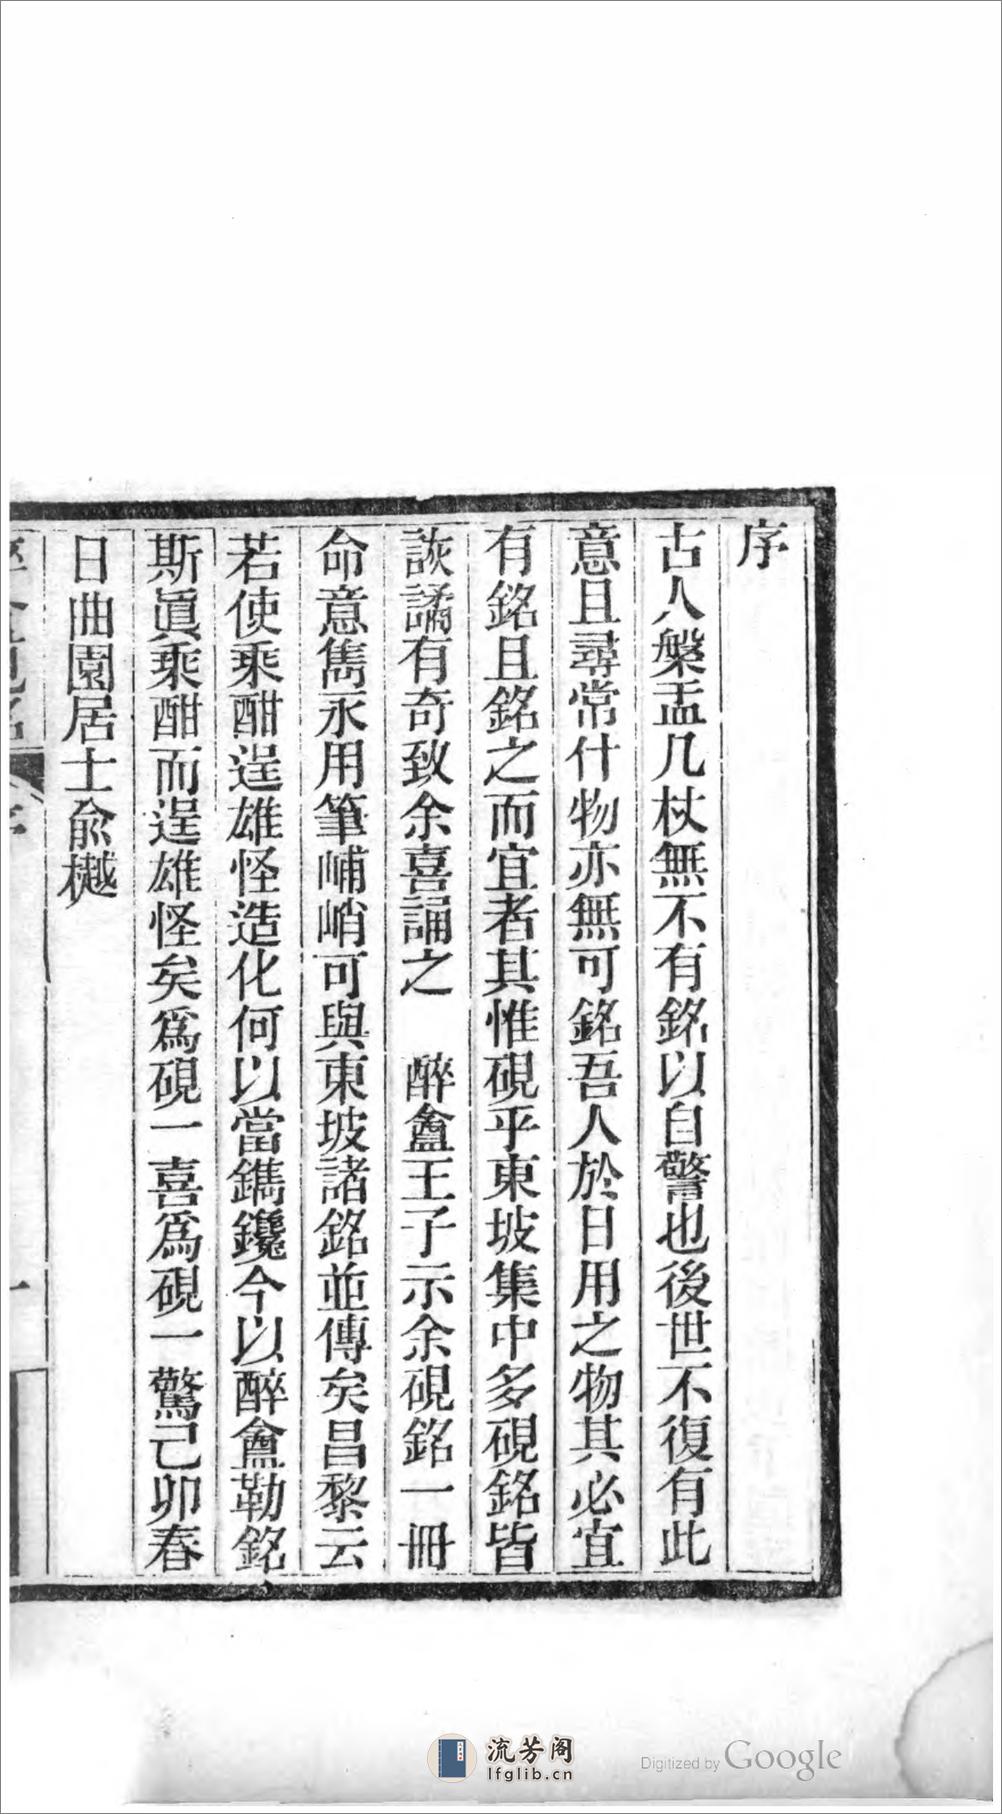 序
古人槃盂几杖無不有銘以自警也後世不復有此
意且尋常什物亦無可銘吾人於日用之物其必宜
有銘且銘之而宜者其惟硯乎東坡集中多硯銘皆
詼譎有奇致余喜誦之　醉盦王子示余硯銘一冊
命意雋永用筆峬峭可與東坡諸銘並傳矣昌黎云
若使乘酣逞雄怪造化何以當鐫鑱今以醉盦勒銘
斯眞乘酣而逞雄怪矣爲硯一喜爲硯一驚己卯春
日曲園居士俞樾
流芳阁
lfglib.cn
Digitized by Google